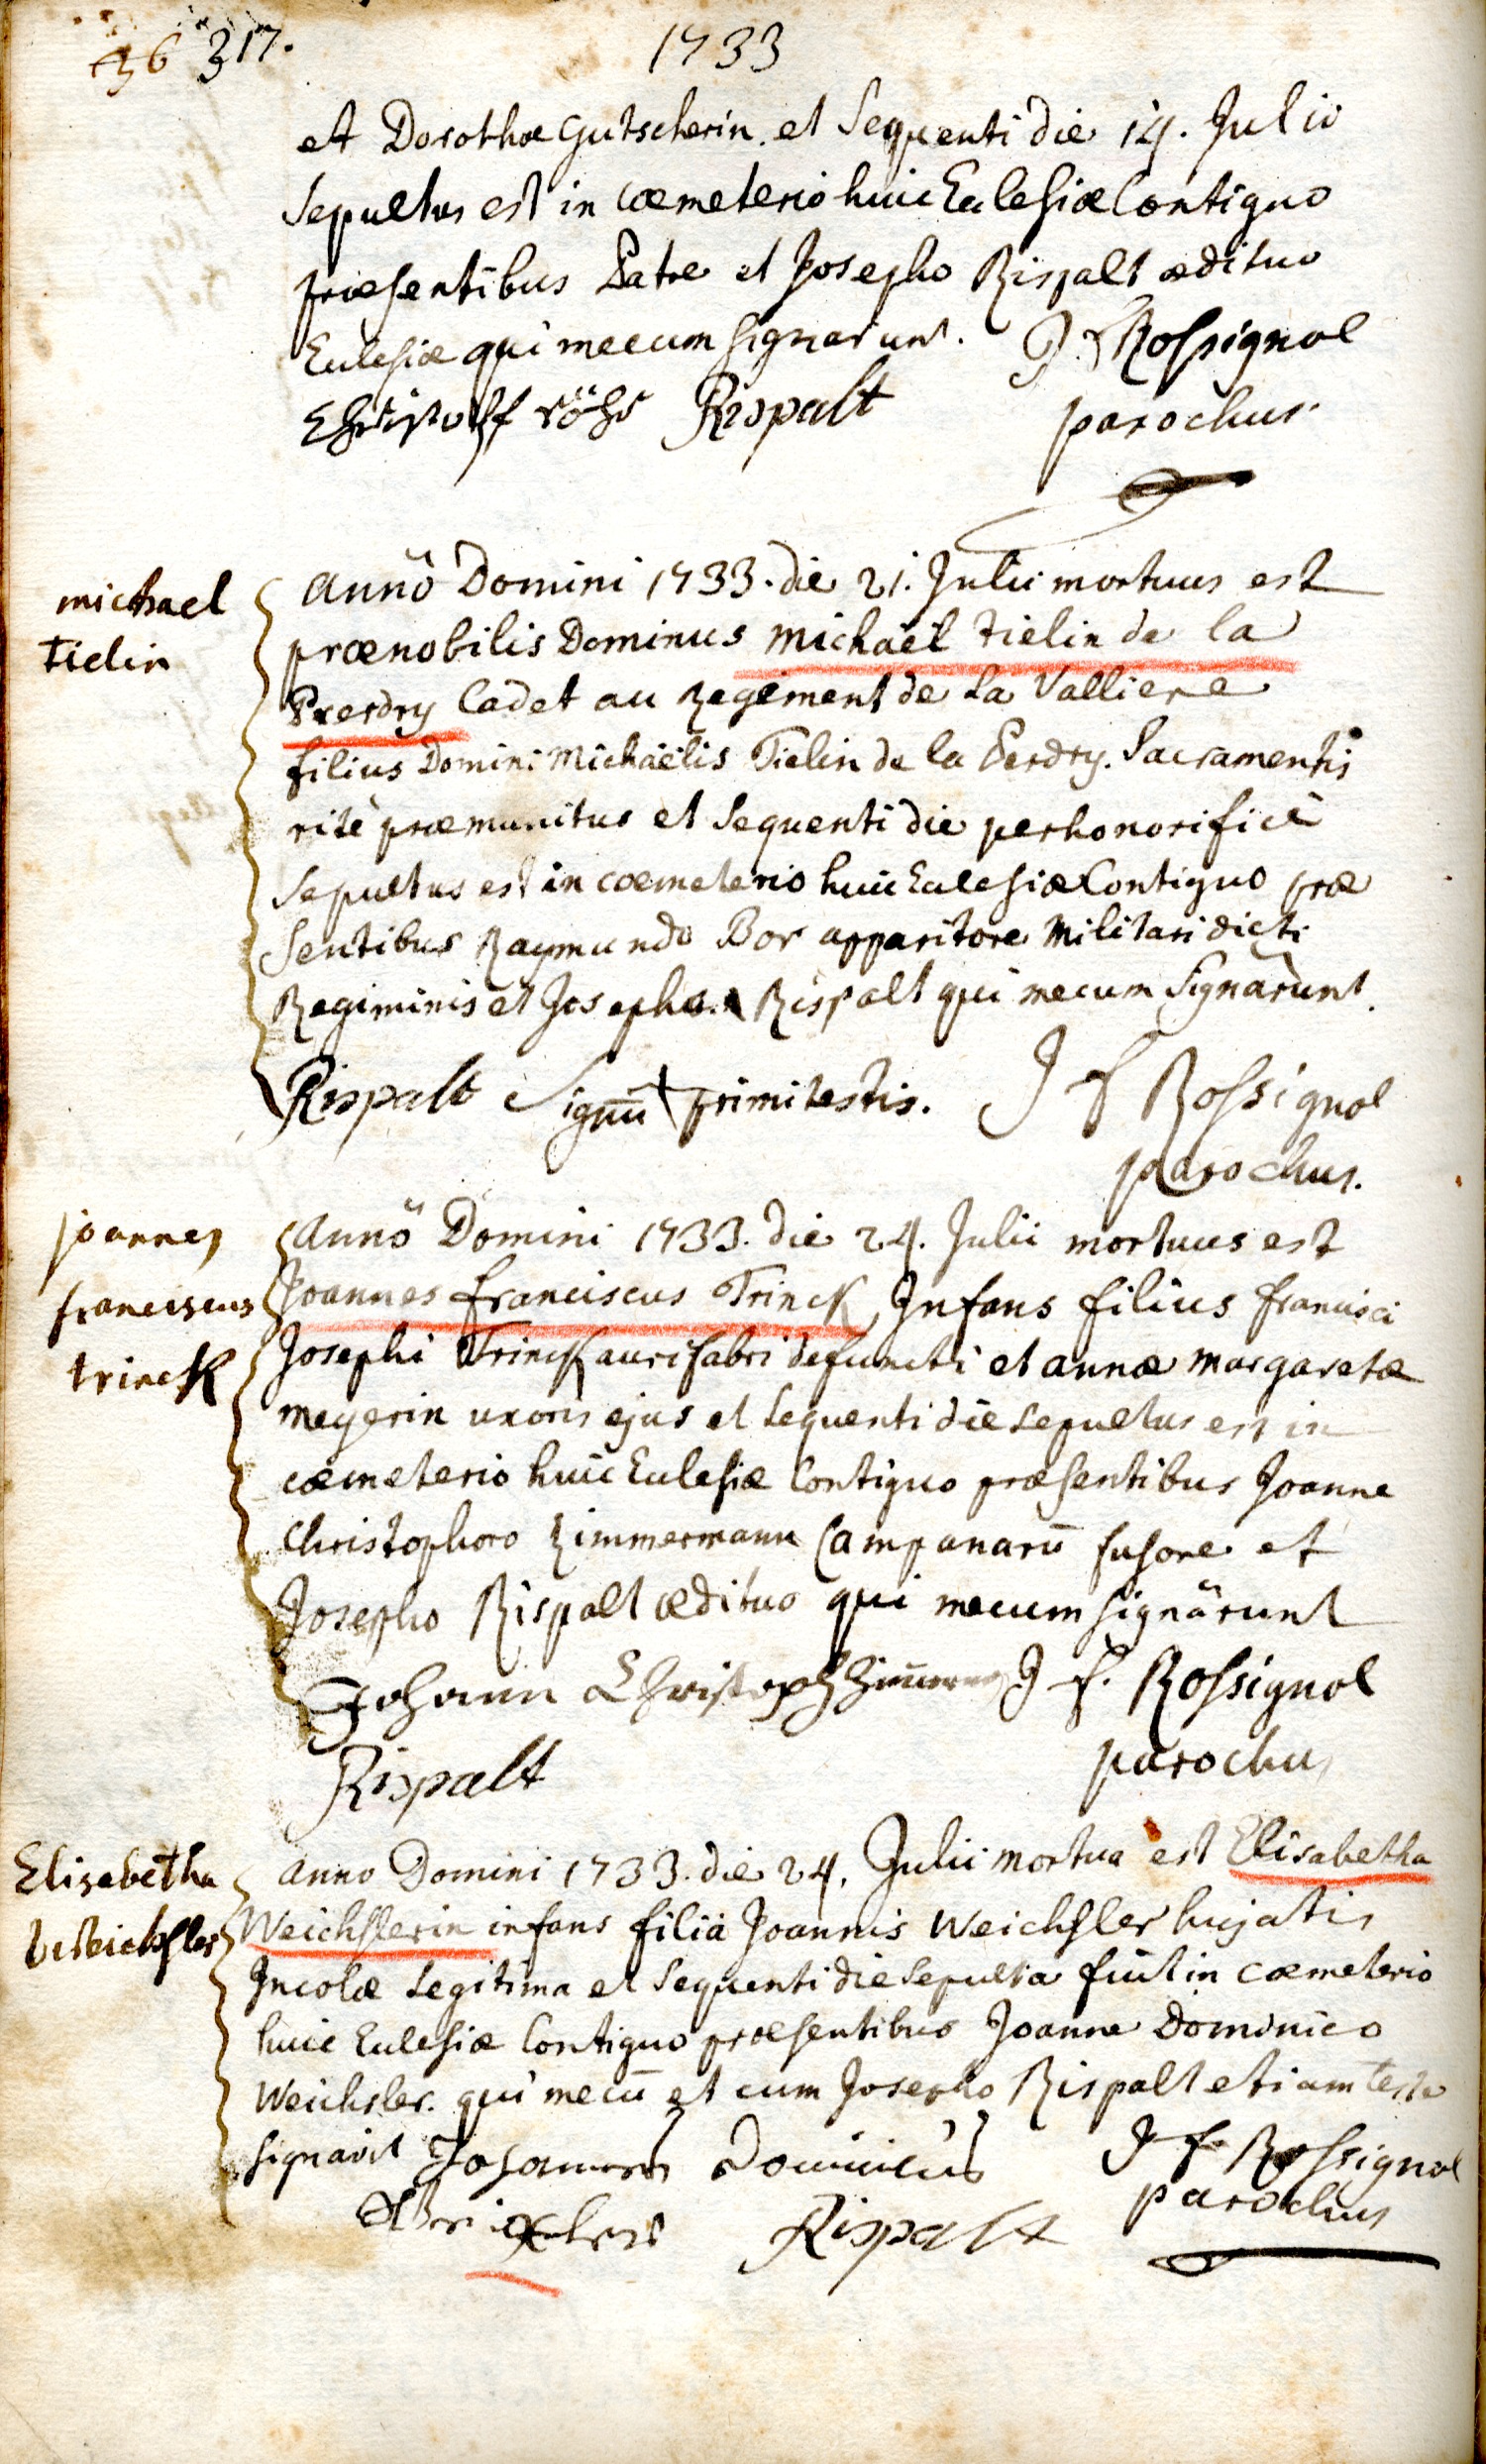 36 317.
1733
et Dorothae Gutscherin. et Sequenti die 14. Julii
Sepultus est in coemeterio huic Ecclesiae Contiguo
praesentibus Patre et Josepho Rispalt aedituo
Ecclesiae qui mecum signarunt. J. f Rossignol
Christoff Rispalt parochus.
michael
Tielin
Anno Domini 1733. die 21. Julii mortuus est
praenobilis Dominus Michaël Tielin de la
Perdry Cadet au Regiment de La Valliere
filius Domini Michaëlis Tielin de la Perdry. Sacramentis
rite praemunitus et Sequenti die perhonorifice
Sepultus est in coemeterio huic Ecclesiae Contiguo prae
Sentibus Raymundo Bor apparitore Militari dicti
Regiminis et Josepho Rispalt qui mecum Signarunt.
Rispalt Signū + primi testis. J f Rossignol
parochus.
joannes
franciscus
trinck
Anno Domini 1733. die 24. Julii mortuus est
Joannes franciscus Trinck Infans filius francisci
Josephi Trinck aurifabri defuncti et annae margaretae
meyerin uxoris ejus et Sequenti die sepultus est in
coemeterio huic Ecclesiae Contiguo praesentibus Joanne
Christophoro Zimmermann Campanarū fusore et
Josepho Rispalt aedituo qui mecum signârunt
Johann Christoph J f. Rossignol
Rispalt parochus
Elisabetha
Weichsler
Anno Domini 1733. die 24. Julii mortua est Elisabetha
Weichslerin infans filia Joannis Weichsler hujatis
Incolae Legitima et Sequenti die sepulta fuit in coemeterio
huic Ecclesiae Contiguo praesentibus Joanne Dominico
Weichsler. qui mecū et cum Josepho Rispalt etiam teste
signavit Johannes Dominicus J f. Rossignol
Rispalt parochus